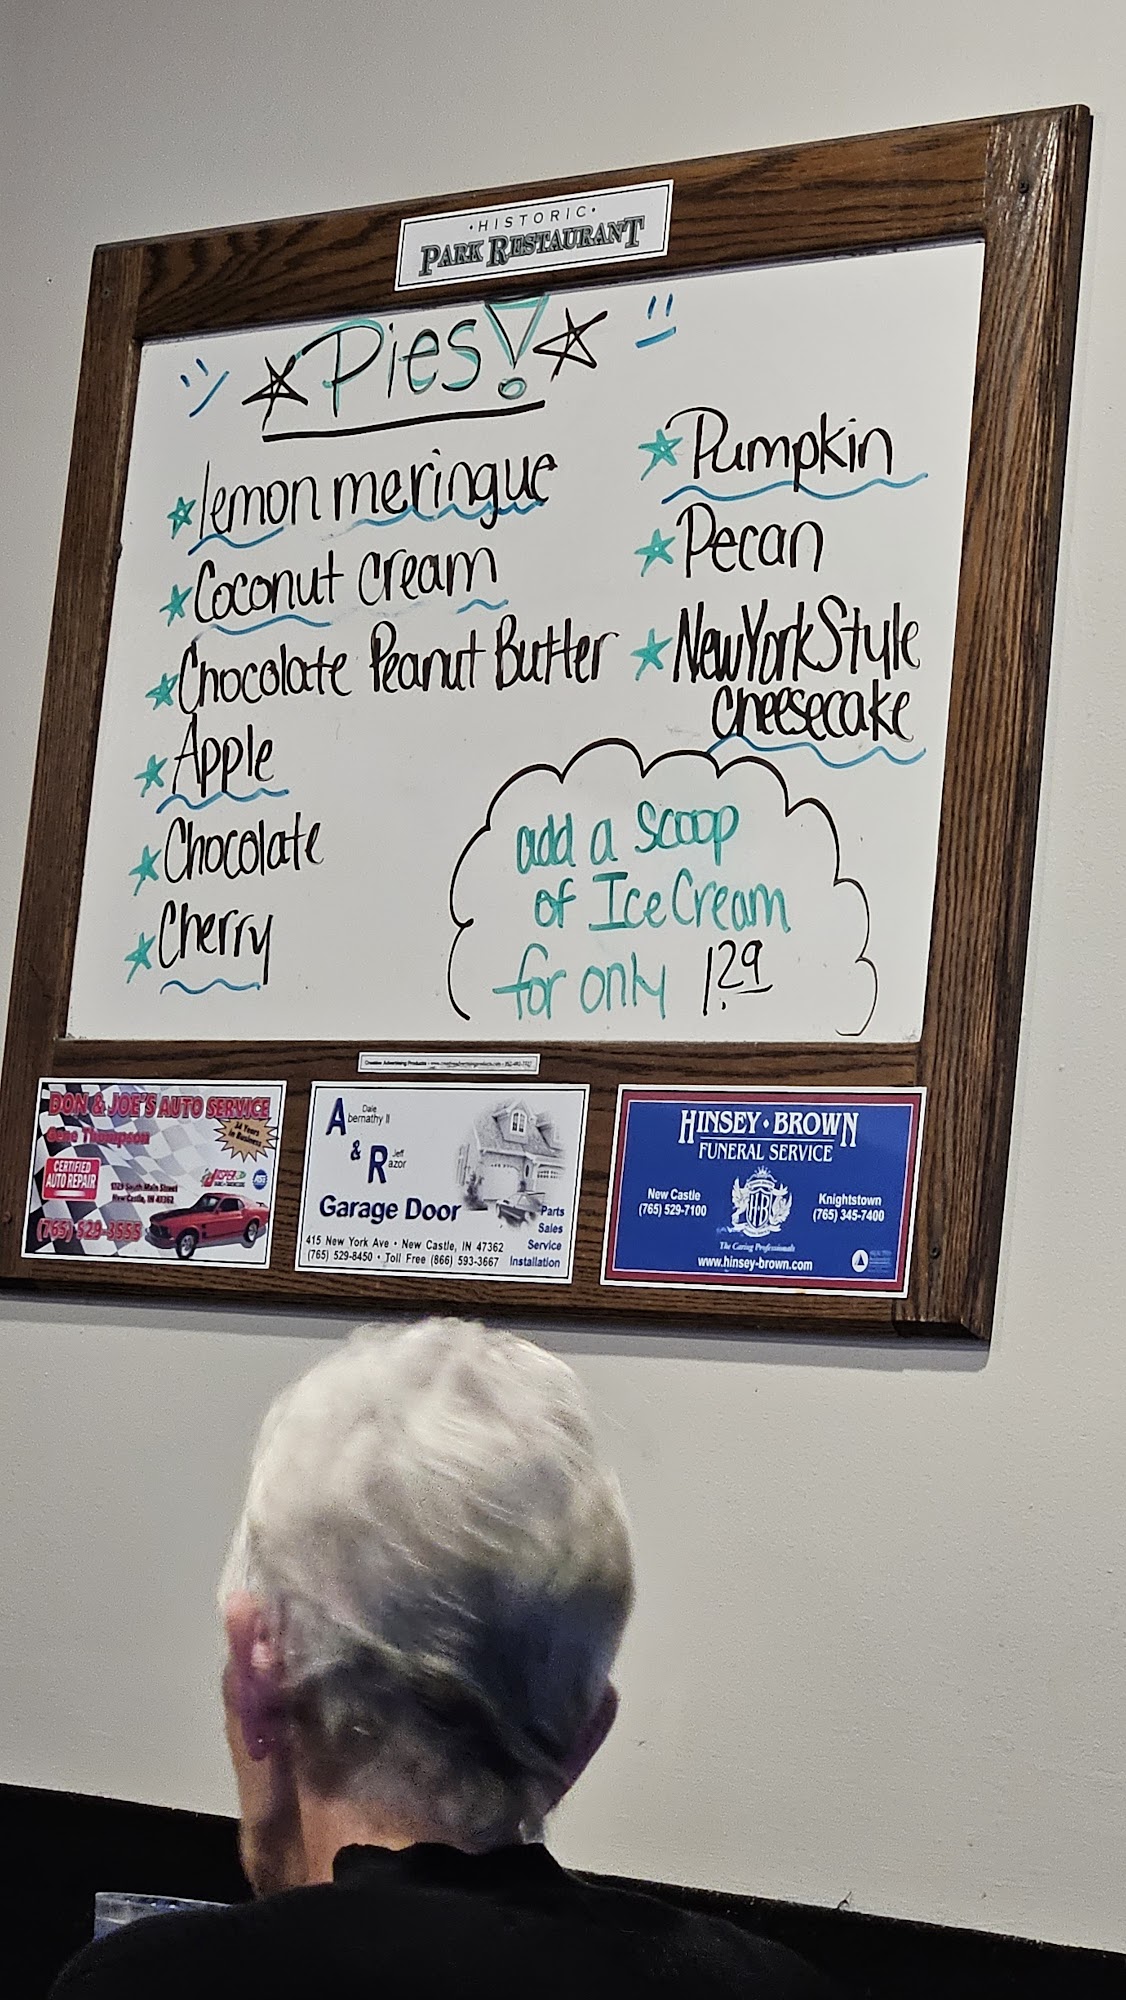 ·HISTORIC·
PARK RESTAURANT
Pies!
lemon meringue
Coconut Cream
Chocolate Peanut Butter
Apple
Chocolate
Cherry
Pumpkin
Pecan
New York Style
Cheesecake
add a Scoop
of Ice Cream
for only 1.29
DON & JOE'S AUTO SERVICE
Gene Thompson
CERTIFIED
AUTO REPAIR
1729 South Main Street
New Castle, IN 47362
(765) 529-3555
Dale
Abernathy II
&
Jeff
Razor
Garage Door
Parts
Sales
Service
Installation
415 New York Ave • New Castle, IN 47362
(765) 529-8450 • Toll Free (866) 593-3667
HINSEY·BROWN
FUNERAL SERVICE
New Castle
(765) 529-7100
Knightstown
(765) 345-7400
H·B
The Caring Professionals
www.hinsey-brown.com